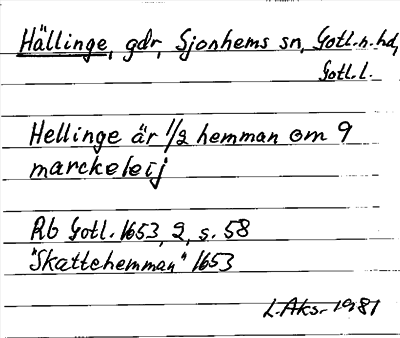 Hällinge, gdr, Sjonhems sn, Gotl.n.hd,
Gotl.l.
Hellinge är 1/2 hemman om 9
marckeleij
Rb Gotl. 1653, 2, s. 58
"Skattehemman" 1653
L. Aks. 1981